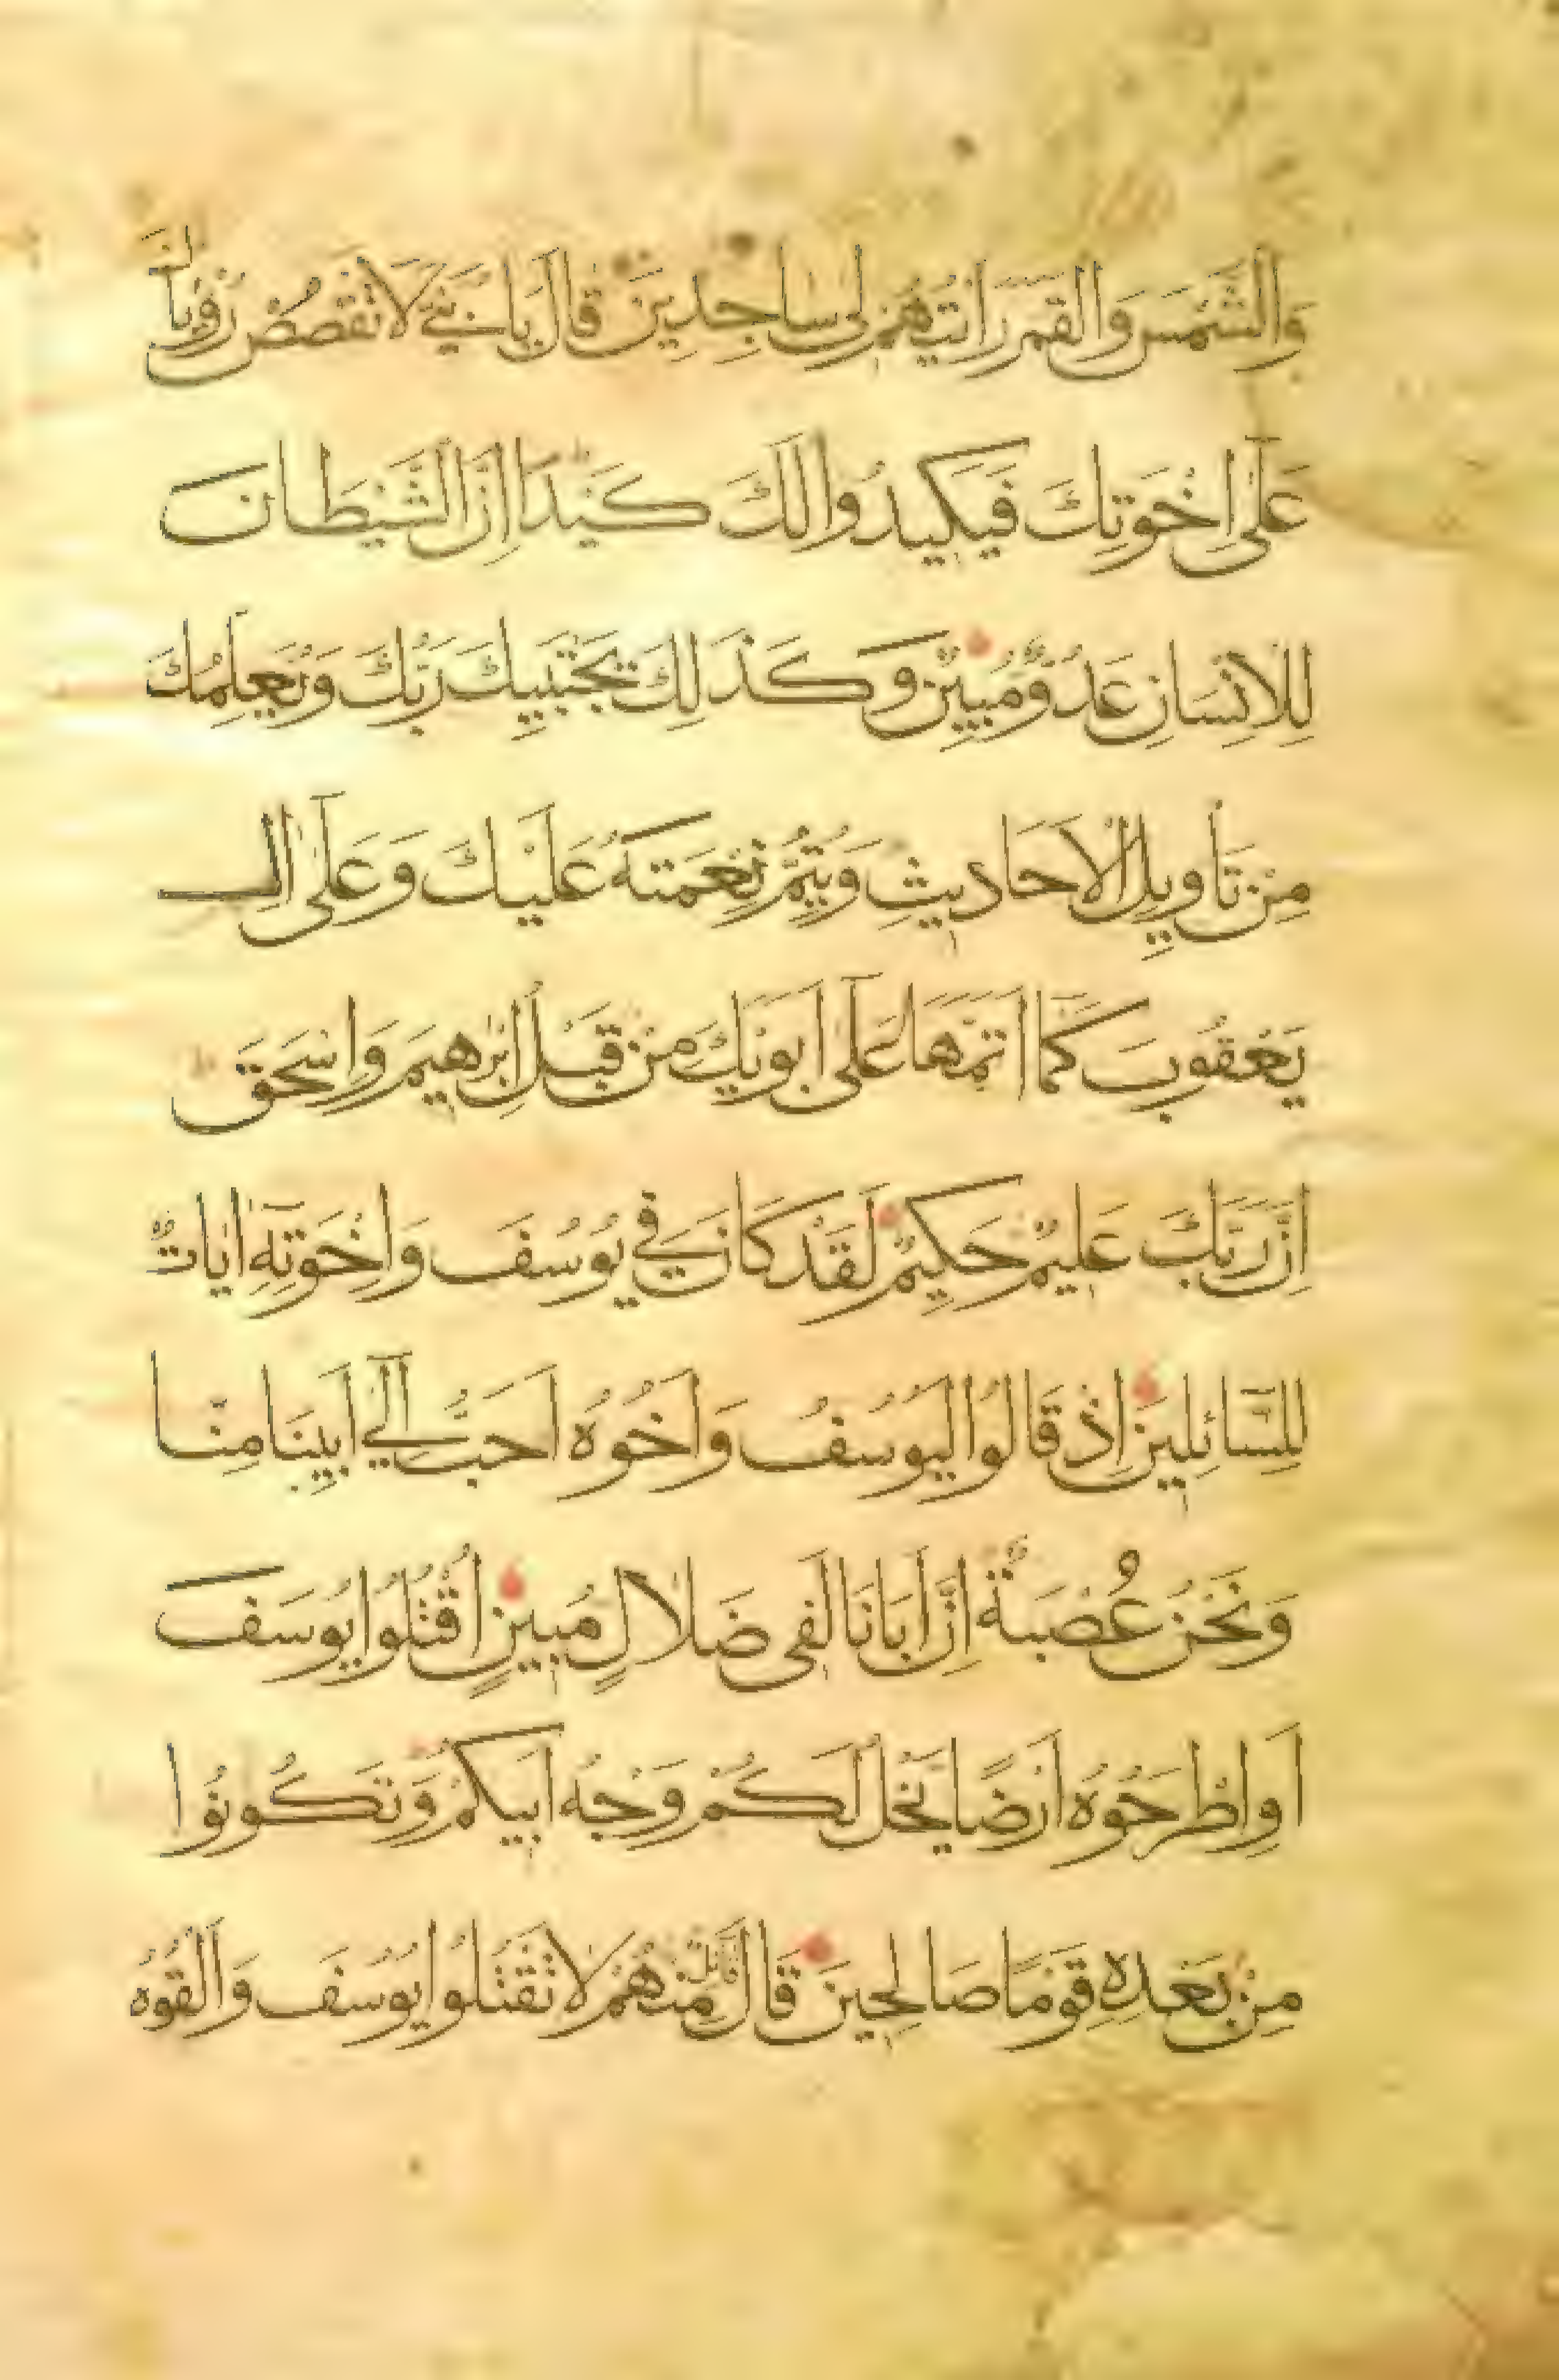 وَالشَّمْسَ وَالقَمَرَ رَاَيْتُهُمْ لى سَاجِدِينَ قَالَ يَا بُنَيَّ لَا تَقْصُصْ رُؤْيَاكَ
عَلٰى اِخْوَتِكَ فَيَكِيدُوا لَكَ كَيْدًا اِنَّ الشَّيْطَانَ
لِلْاِنْسَانِ عَدُوٌّ مُبِيْنٌ وَكَذٰلِكَ يَجْتَبِيكَ رَبُّكَ وَيُعَلِّمُكَ
مِنْ تَأوِيلِ الْاَحَادِيثِ وَيُتِمُّ نِعْمَتَهُ عَلَيْكَ وَعَلٰى اٰلِ
يَعْقُوبَ كَمَا اَتَمَّهَا عَلٰى اَبَوَيْكَ مِنْ قَبْلُ اِبْرٰهِيمَ وَاِسْحٰقَ
اِنَّ رَبَّكَ عَلِيْمٌ حَكِيْمٌ لَقَدْ كَانَ فِي يُوسُفَ وَاِخْوَتِهِ اٰيَاتٌ
لِلسَّائِلِينَ اِذْ قَالُوا لَيُوسُفُ وَاَخُوهُ اَحَبُّ اِلٰي اَبِينَا مِنَّا
وَنَحْنُ عُصْبَةٌ اِنَّ اَبَانَا لَفِى ضَلَالٍ مُبِينٍ اُقْتُلُوا يُوسُفَ
اَوِ اطْرَحُوهُ اَرْضًا يَخْلُ لَكُمْ وَجْهُ اَبِيكُمْ وَتَكُونُوا
مِنْ بَعْدِهِ قَوْمًا صَالِحِينَ قَالَ قَائِلٌ مِنْهُمْ لَا تَقْتُلُوا يُوسُفَ وَاَلْقُوهُ